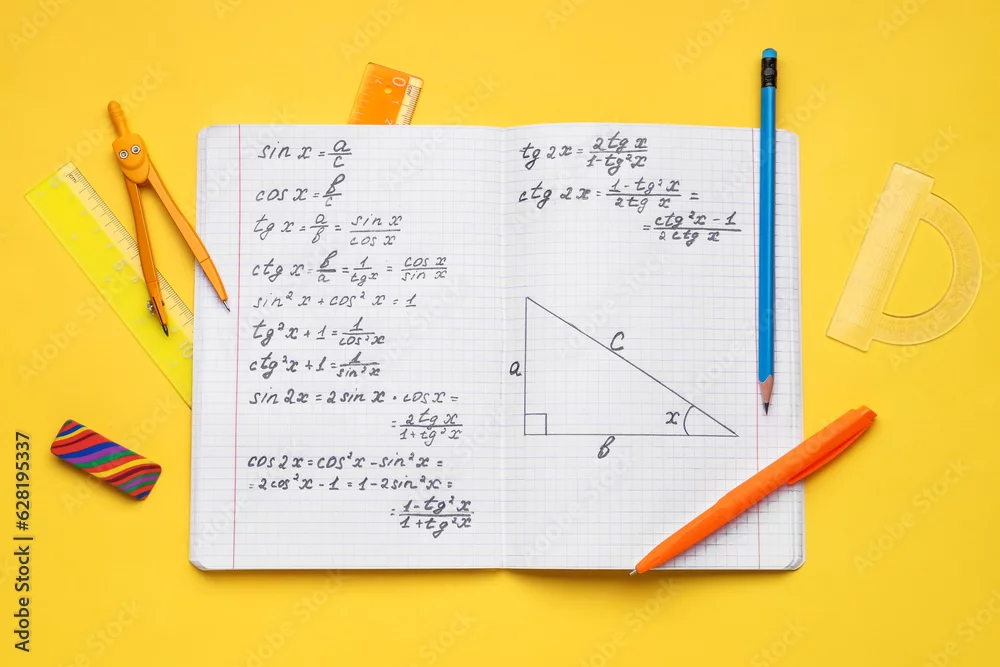 sin x = a/c
cos x = b/c
tg x = a/b = sin x/cos x
ctg x = b/a = 1/tg x = cos x/sin x
sin² x + cos² x = 1
tg² x + 1 = 1/cos² x
ctg² x + 1 = 1/sin² x
sin 2x = 2 sin x · cos x =
= 2 tg x/1 + tg² x
cos 2x = cos² x - sin² x =
= 2 cos² x - 1 = 1 - 2 sin² x =
= 1 - tg² x/1 + tg² x
tg 2x = 2 tg x/1 - tg² x
ctg 2x = 1 - tg² x/2 tg x =
= ctg² x - 1/2 ctg x
a
c
x
b
0
Adobe Stock | #628195337